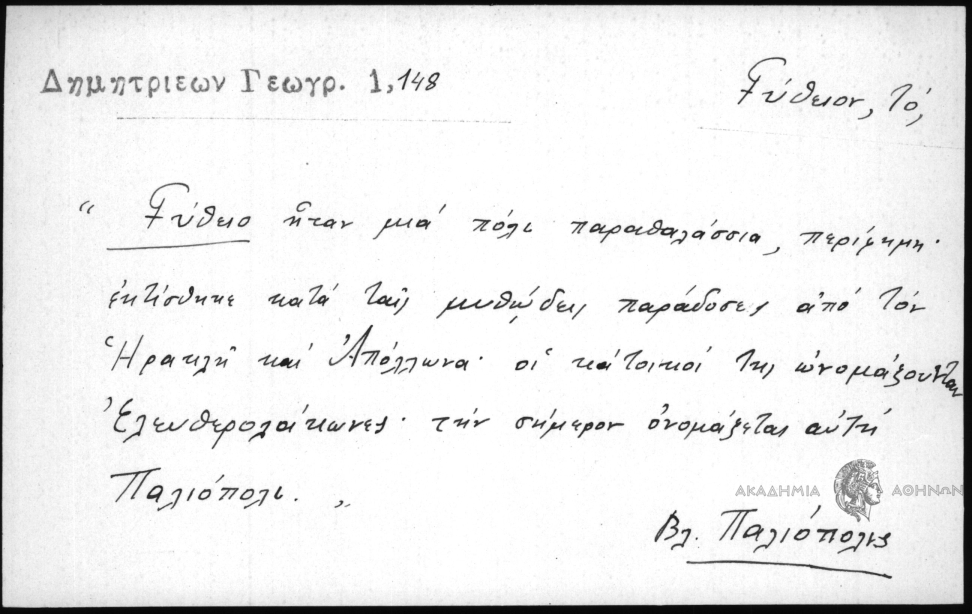 Δημητριεων Γεωγρ. 1,148
Γύθειον, τό,
“ Γύθειο ἦταν μιά πόλι παραθαλάσσια, περίφημη·
ἐκτίσθηκε κατά ταῖς μυθώδεις παράδοσες ἀπό τόν
Ἡρακλῆ καί Ἀπόλλωνα· οἱ κάτοικοί της ὠνομάζουνταν
Ἐλευθερολάκωνες· τήν σήμερον ὀνομάζεται αὐτή
Παλιόπολι. „
ΑΚΑΔΗΜΙΑ ΑΘΗΝΩΝ
Βλ. Παλιόπολις